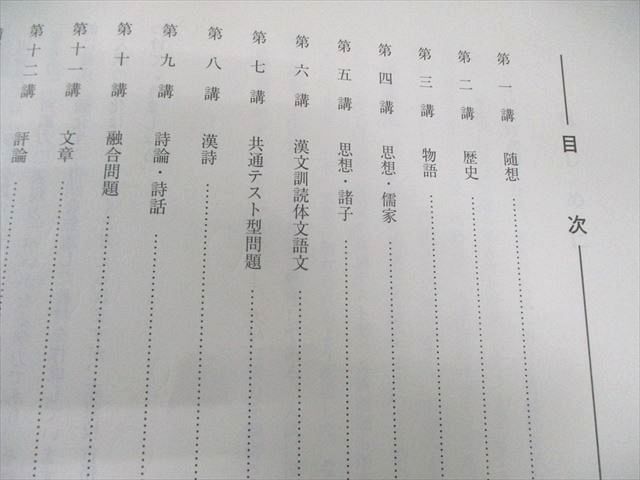 目次
第一講 随想
第二講 歴史
第三講 物語
第四講 思想・儒家
第五講 思想・諸子
第六講 漢文訓読体文語文
第七講 共通テスト型問題
第八講 漢詩
第九講 詩論・詩話
第十講 融合問題
第十一講 文章
第十二講 評論